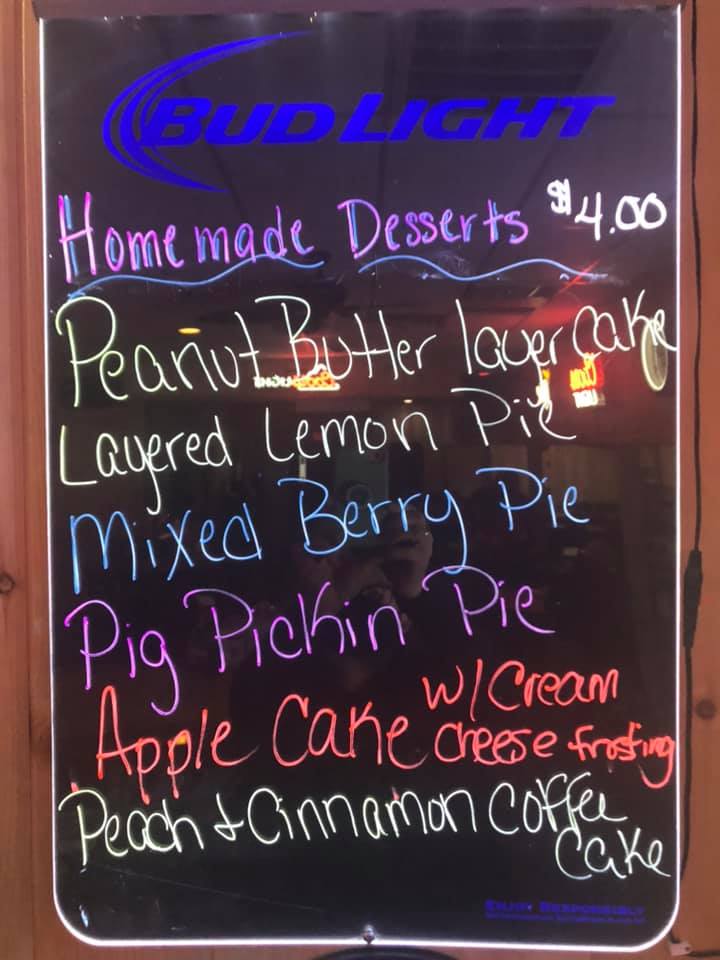 BUD LIGHT
Homemade Desserts $4.00
Peanut Butter layer Cake
Layered Lemon Pie
Mixed Berry Pie
Pig Pickin Pie
Apple Cake w/ Cream
cheese frosting
Peach & Cinnamon Coffee
Cake
ENJOY RESPONSIBLY